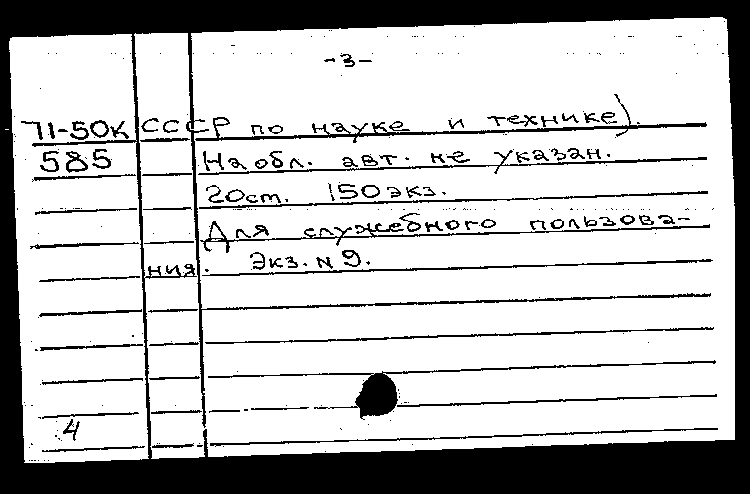 -3-
71-50К СССР по науке и технике).
585 На обл. авт. не указан.
20ст. 150экз.
Для служебного пользова-
ния. Экз. N 9.
4